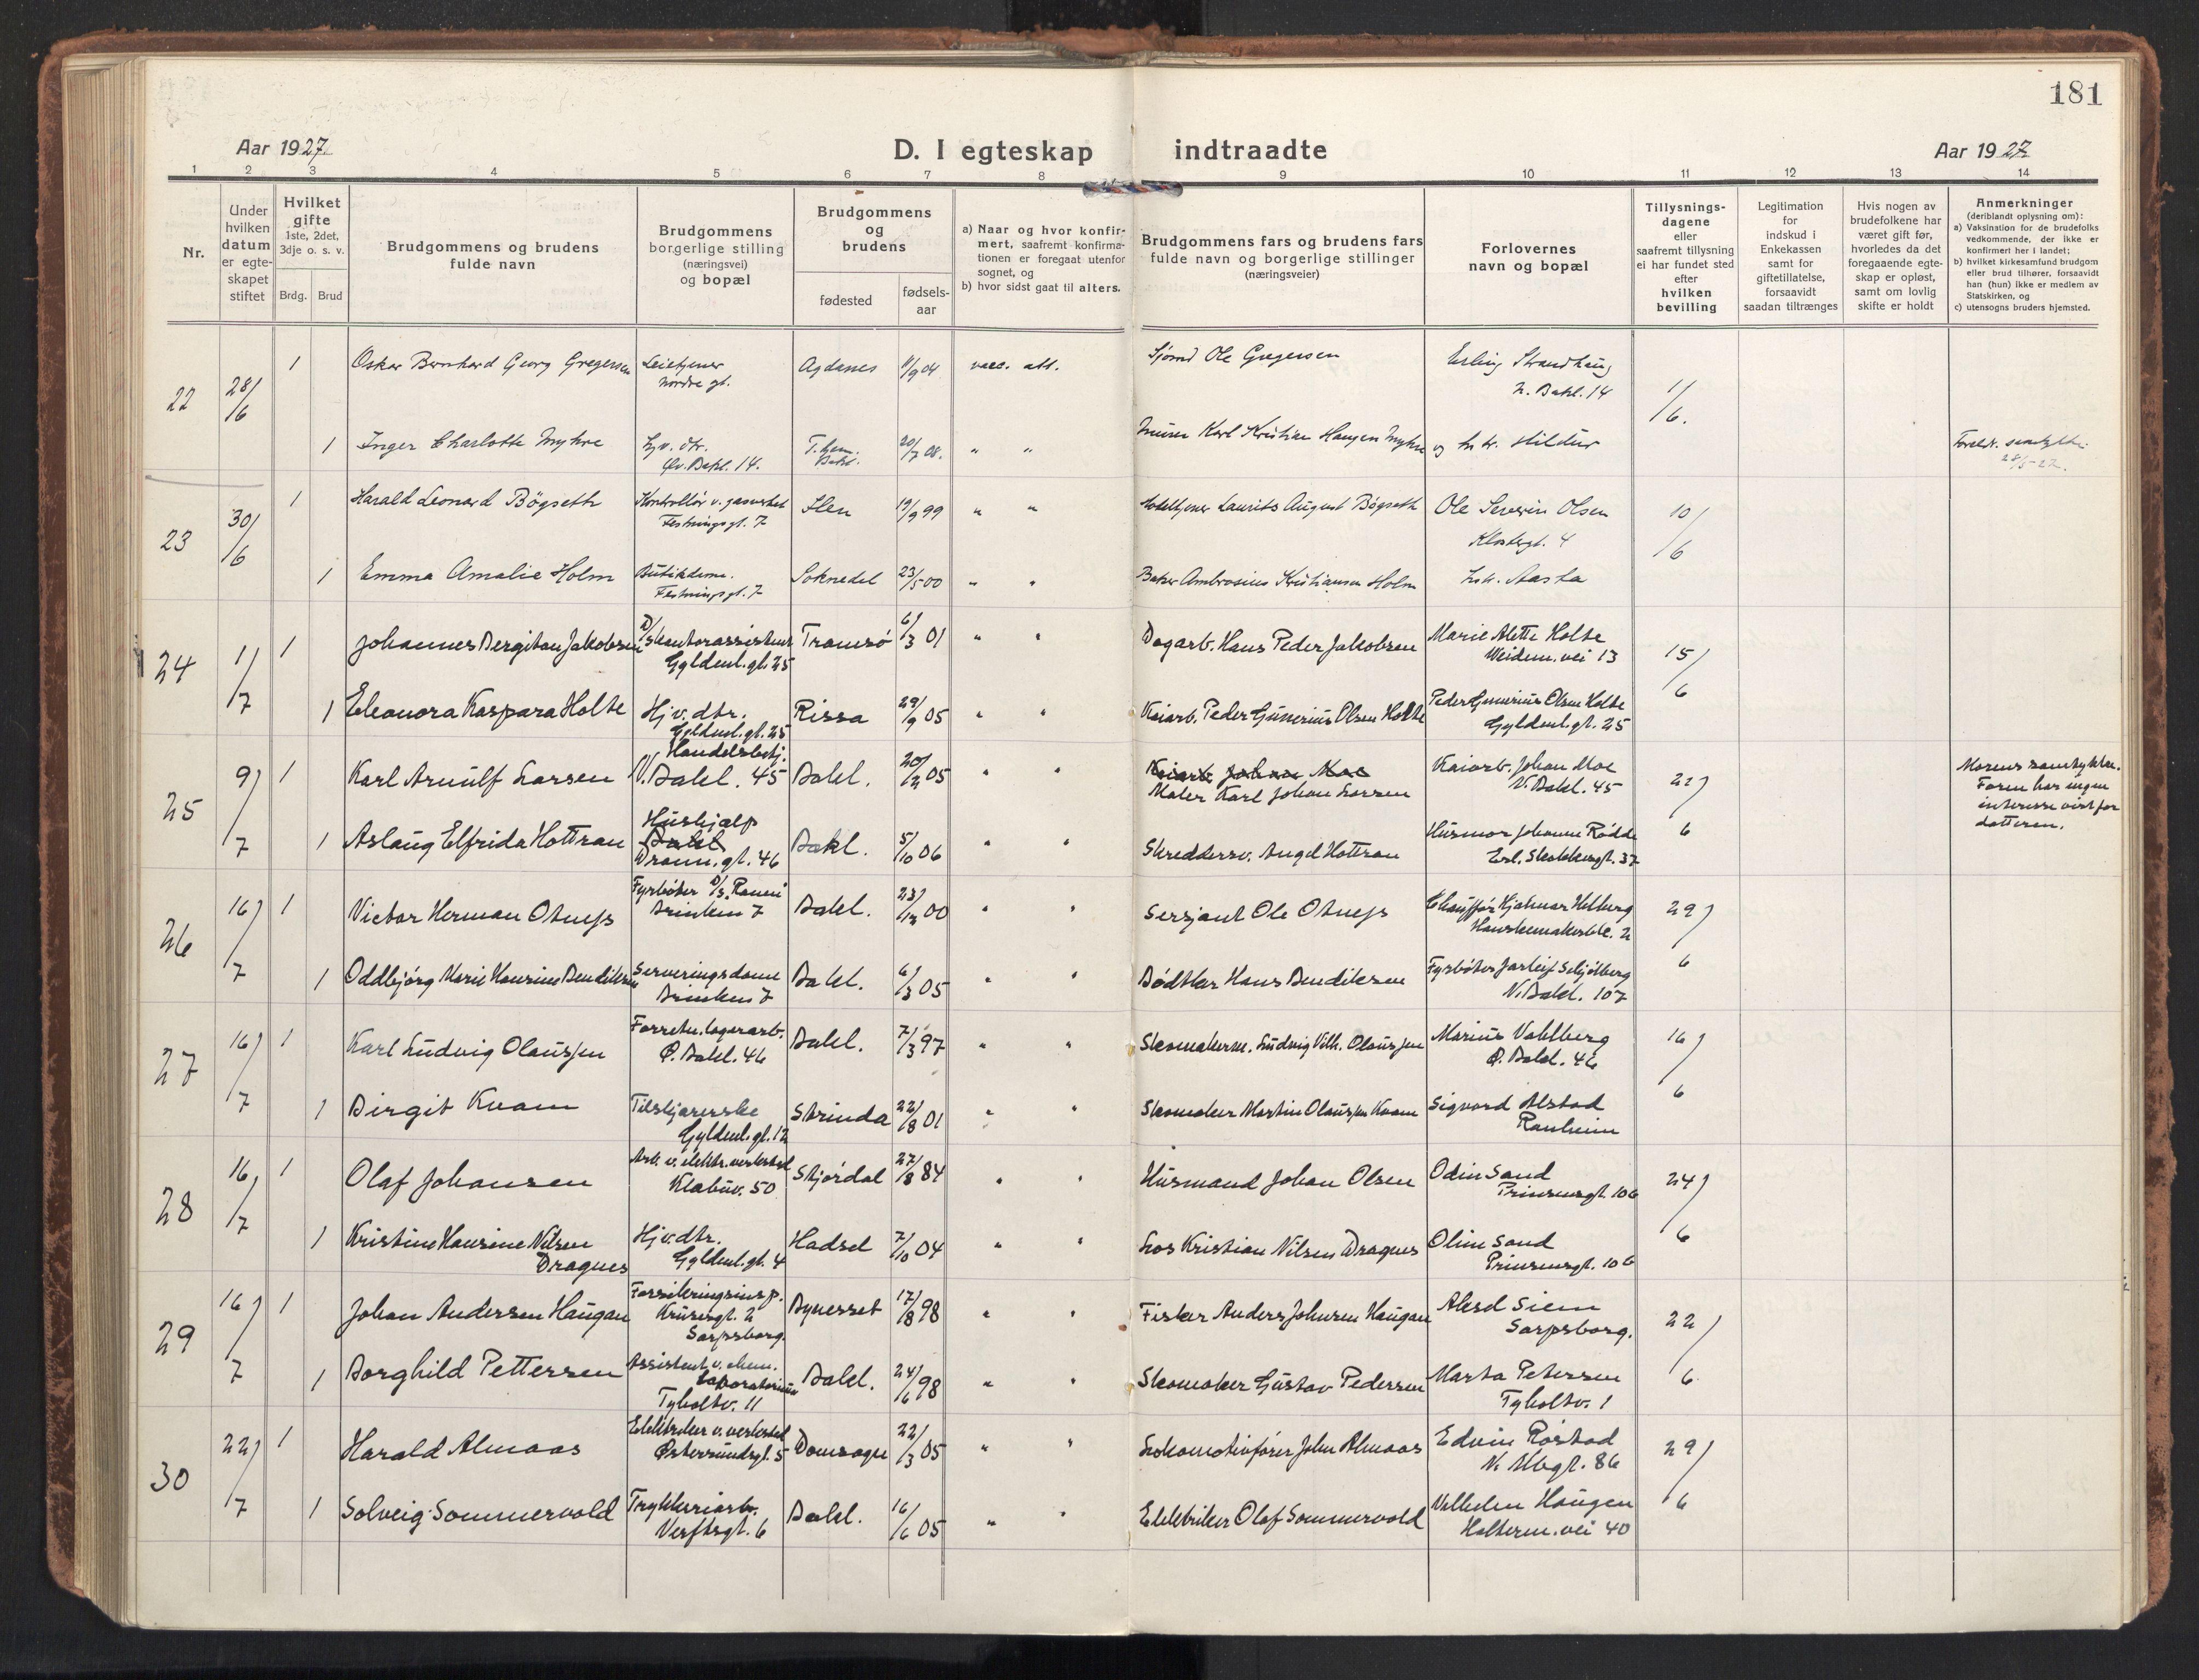 181
Aar 1927
D. I egteskap indtraadte
Aar 1927
1 2 3 4 5 6 7 8 9 10 11 12 13 14
Nr.
Under hvilken datum er egteskapet stiftet
Hvilket gifte 1ste, 2det, 3dje o. s. v.
Brdg. Brud
Brudgommens og brudens fulde navn
Brudgommens borgerlige stilling (næringsvei) og bopæl
Brudgommens og brudens
fødested
fødsels-aar
a) Naar og hvor konfirmert, saafremt konfirmationen er foregaat utenfor sognet, og
b) hvor sidst gaat til alters.
Brudgommens fars og brudens fars fulde navn og borgerlige stillinger (næringsveier)
Forlovernes navn og bopæl
Tillysningsdagene eller saafremt tillysning ei har fundet sted efter hvilken bevilling
Legitimation for indskud i Enkekassen samt for giftetillatelse, forsaavidt saadan tiltrænges
Hvis nogen av brudefolkene har været gift før, hvorledes da det foregaaende egteskap er opløst, samt om lovlig skifte er holdt
Anmerkninger (deriblandt oplysning om):
a) Vaksination for de brudefolks vedkommende, der ikke er konfirmert her i landet;
b) hvilket kirkesamfund brudgom eller brud tilhører, forsaavidt han (hun) ikke er medlem av Statskirken, og
c) utensogns bruders hjemsted.
22 28/6 1 Oskar Bernhard Georg Gregersen
Nordre gt.
Agdenes 11/9 04 vacc. att. Sjømd Ole Gregersen
Erling Strandhaug
N. Bakl. 14
1/6.
1 Inger Charlotte Myhre Hj.v. dtr.
Øv. Bakl. 14.
20/7 08. " " Murer Karl Kristian Haugen Myhre
23 30/6 1 Harald Leonard Bögseth Kontrollör v. gasverket
Festningsgt. 7
Ilen 19/9 99 " " Laurits August Bögseth Ole Severin Olsen
Klostergt. 4
10/6
1 Emma Amalie Holm Butikdame.
Festningsgt. 7
Soknedal 23/5 00 " " Baker Ambrosius Kristiansen Holm
24 1/7 1 Johannes Bergiton Jakobsen
D/skontorassistent
Gyldenl. gt. 25
Tromsö 6/3 01 " " Dagarb. Hans Peder Jakobsen Marie Alette Holte
Weidem. vei 13
15/6
1 Eleonora Kaspara Holte Hjv. dtr.
Gyldenl. gt. 25
Rissa 29/9 05 " " Kaiarb. Peder Gunerius Olsen Holte Peder Gunerius Olsen Holte
Gyldenl. gt. 25
25 9/7 1 Karl Arnulf Larsen Handelsbetj.
N. Bakl. 45
Bakl. 20/2 05 " " Kaiarb. Johan Moe
Maler Karl Johan Larsen
Kaiarb. Johan Moe
N. Bakl. 45
21/6
Morens samtykke.
Faren har ingen
interesse vist for
datteren.
1 Aslaug Elfrida Hottran Hushjælp
Bakl
Dronn. gt. 46
Bakl. 5/10 06 " " Skreddersv. Angel Hottran Husmor Johanne Rødde
Erl. Skakkesgt. 37
26 16/7 1 Victor Herman Otnes Fyrböter D/s. Ranei
Brinken 7
Bakl. 23/12 00 " " Sersjant Ole Otnes Chaufför Hjalmar Helberg
Hanskemakerbk. 2
29/6
1 Oddbjörg Marie Hansine Bendiksen Serveringsdame
Brinken 7
Bakl. 6/3 05 " " Bødtker Hans Bendiksen Fyrböter Jarleif Schjölberg
N. Bakl. 107
27 16/7 1 Karl Ludvig Olaussen Forretn. lagerarb.
Ø. Bakl. 46
Bakl. 7/3 97 " " Skomakerm. Ludvig Vilh. Olaussen Marius Vahlberg
Ø. Bakl. 46
16/6
1 Birgit Kvam Tilskjærerske
Gyldenl. gt. 12
Strinda 22/8 01 " " Skomaker Martin Olaussen Kvam Sigvard Alstad
Ranheim
28 16/7 1 Olaf Johansen Arb. v. elektr. verksted
Klæbuv. 50
Stjördal 27/8 84 " " Husmand Johan Olsen Odin Sand
Prinsensgt. 106
24/6
1 Kristine Hansine Nilsen
Dragnes
Hjv. dtr.
Gyldenl. gt. 4
Hadsel 7/10 04 " " Los Kristian Nilsen Dragnes Oline Sand
Prinsensgt. 106
29 16/7 1 Johan Andersen Haugan
Krusesgt. 2
Sarpsborg.
Bynesset 17/8 98 " " Fisker Anders Johnsen Haugan Aksel Siem
Sarpsborg.
22/6
1 Borghild Pettersen Assistent v. chem.
laboratorium
Tyholtv. 11
Bakl. 24/6 98 " " Skomaker Gustav Pedersen Marta Petersen
Tyholtv. 1
30 22/7 1 Harald Almaas Elektriker v. verksted
Østersundsgt. 5
Domsogn 22/3 05 " " Lokomotivförer John Almaas Edvin Röstad
N. Allegt. 86
29/6
1 Solveig Sommervold Trykkeriarb.
Verftsgt. 6
Bakl. 16/6 05 " " Elektriker Olaf Sommervold Vilhelm Haugen
Halterm. vei 40